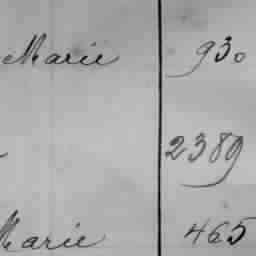 Marie 930
2389
Marie 465